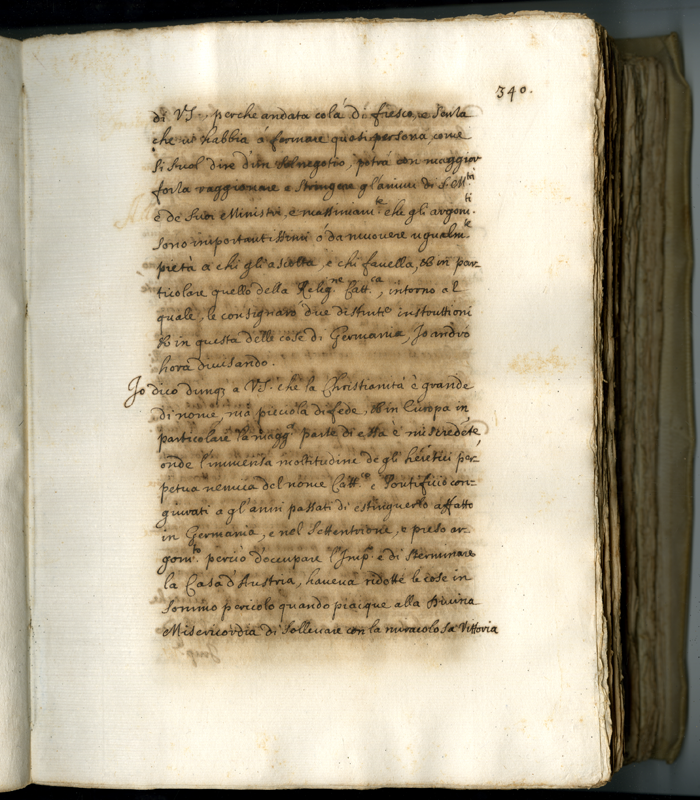 340.
di VS. perche andata colà di fresco, e senza
che vi habbia à formare quasi persona, come
si suol dire d'un sol negotio, potrà con maggior
forza raggionare e stringere gl'animi di S. Mtà
e de Suoi Ministri, e massimamte che gli argomti
sono importantissimi ò da muovere ugualmte
pietà a chi gli ascolta, e chi favella, et in par-
ticolare quello della Religne Cattca, intorno al
quale, le consignarò due distinte instruttioni
et in questa delle cose di Germania, Io andrò
hora divisando.
Io dico dunq; a VS. che la Christianità è grande
di nome, mà piccola di fede, et in Europa in
particolare la maggr parte di essa è miscredẽte
onde l'immensa moltitudine degli heretici per-
petua nemica del nome Cattco e Pontificio con-
giurati a gl'anni passati di estinguerlo affatto
in Germania, e nel Settentrione, e preso ar-
gomto perciò d'occupare l'Impo e di sterminare
la Casa d'Austria, haveva ridotte le cose in
sommo pericolo quando piacque alla Divina
Misericordia di sollevare con la miracolosa Vittoria